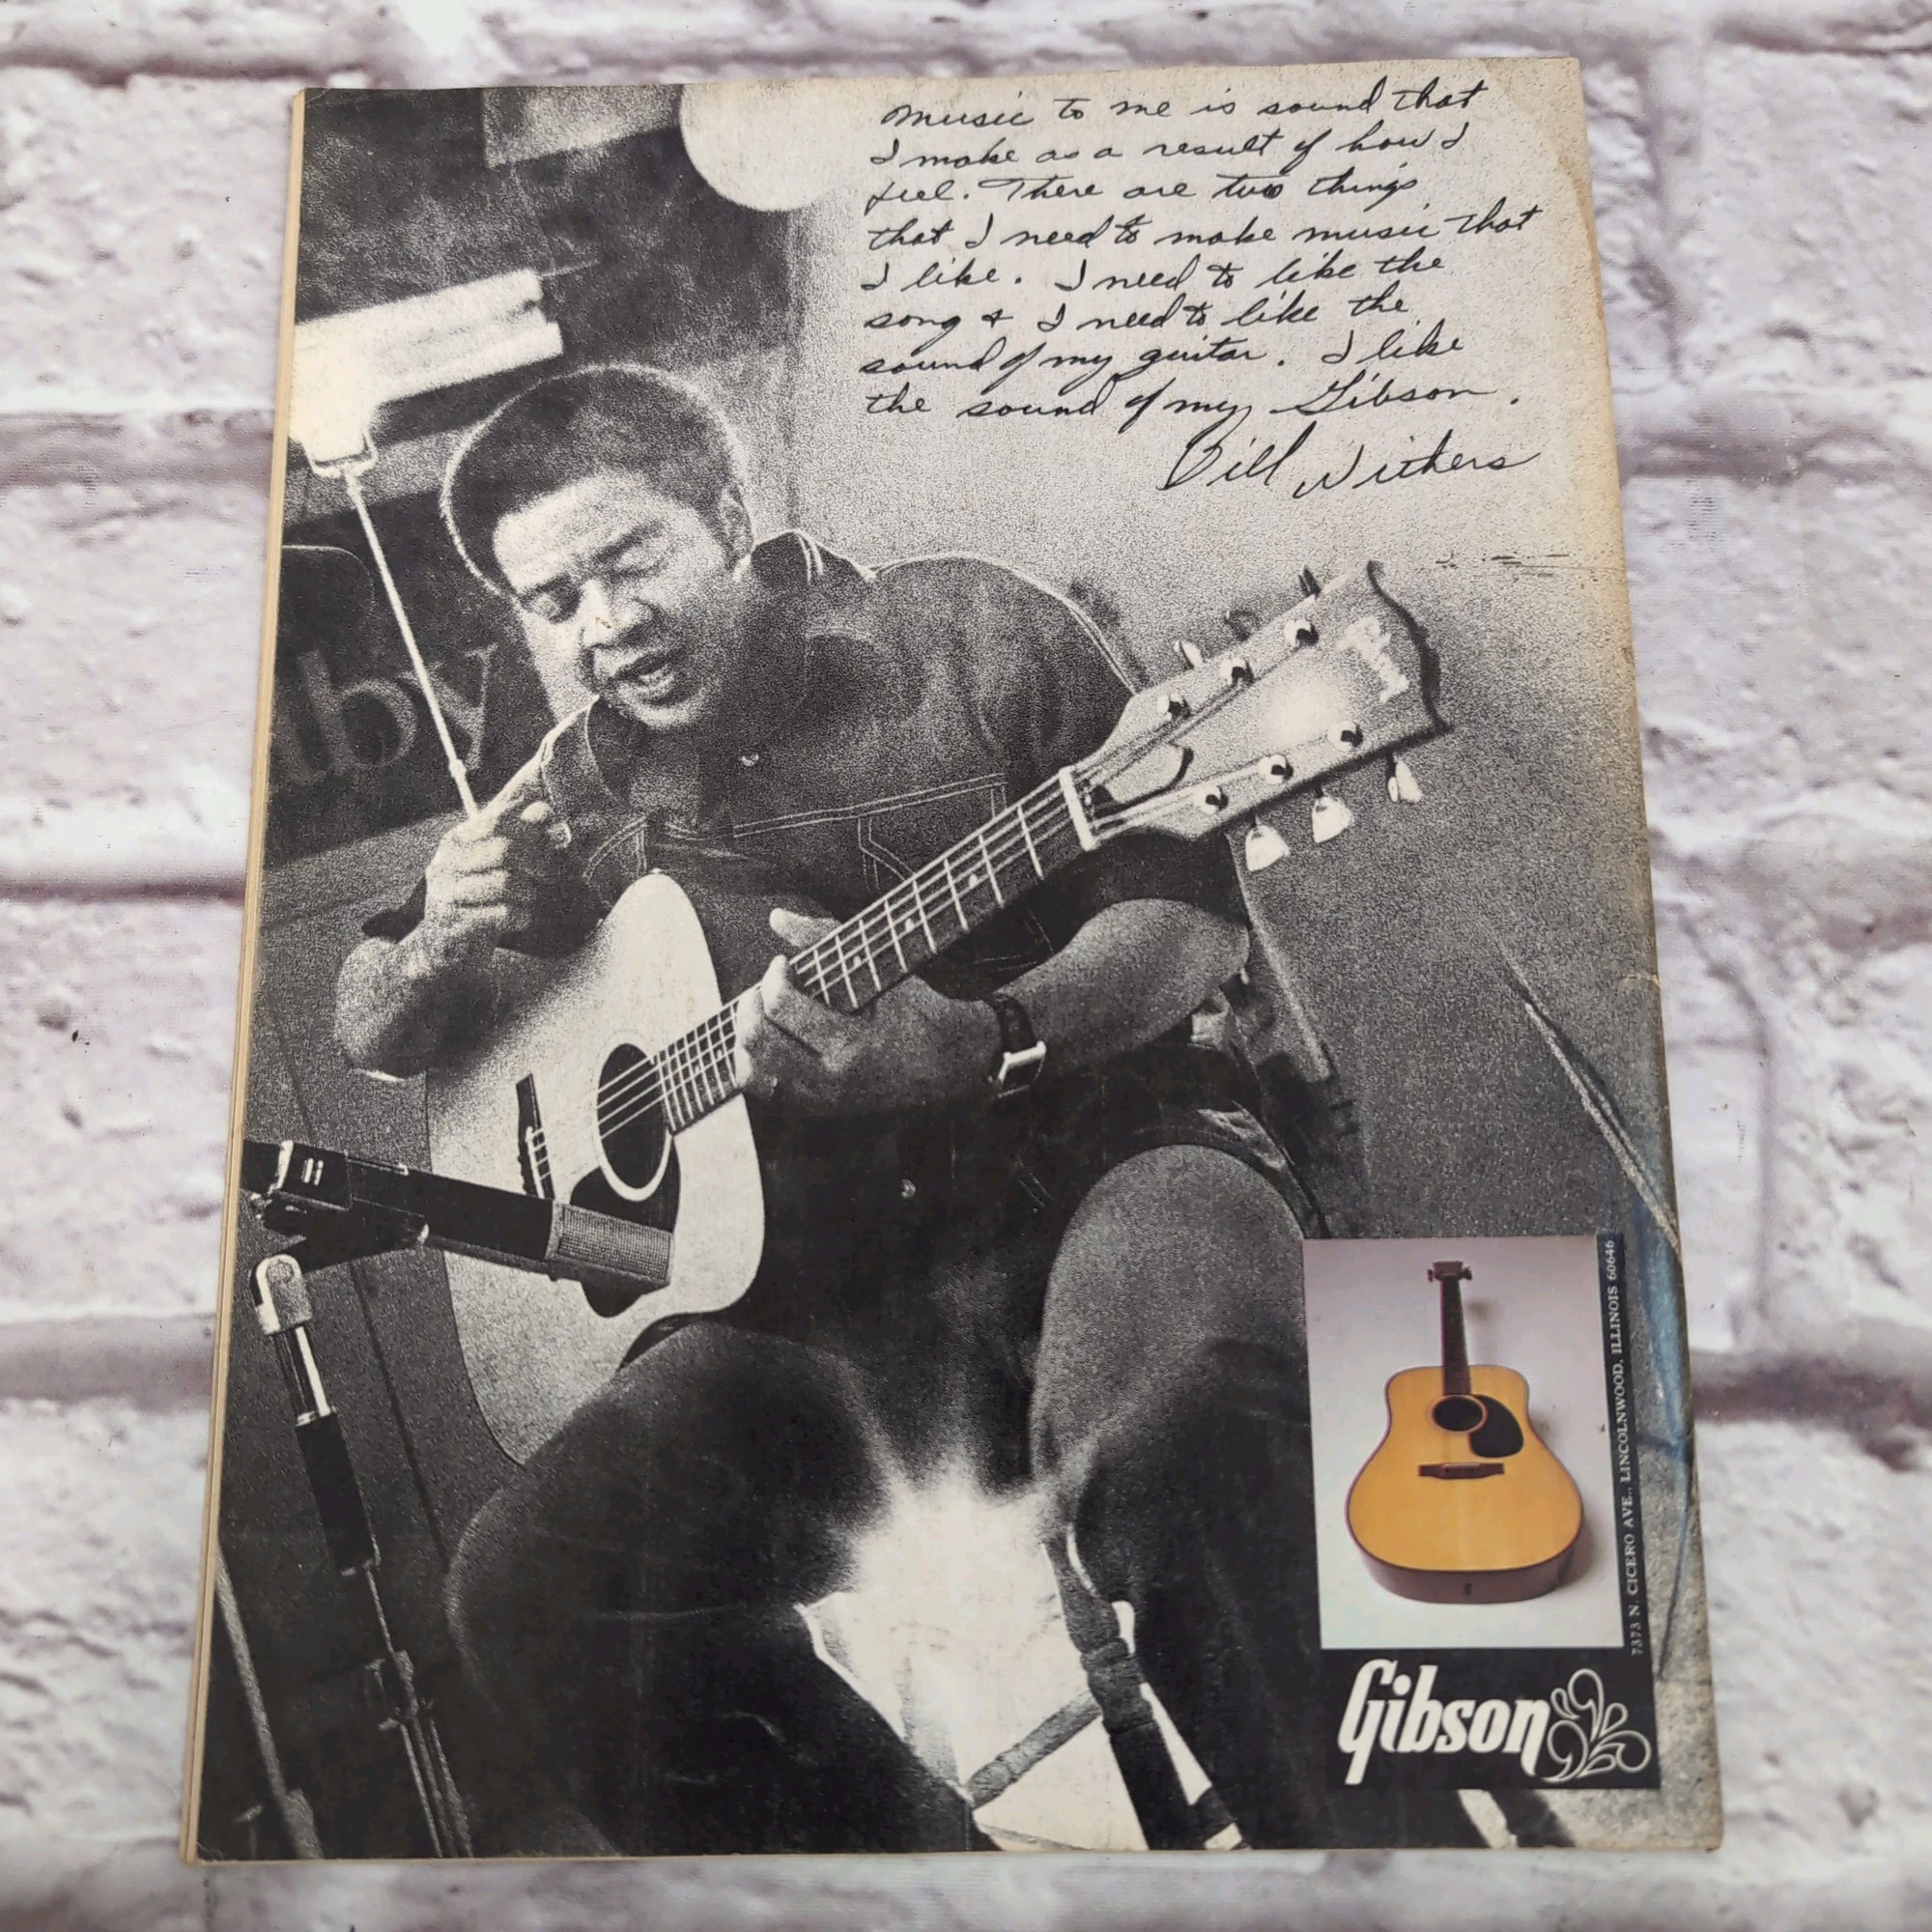 Music to me is sound that
I make as a result of how I
feel. There are two things
that I need to make music that
I like. I need to like the
song & I need to like the
sound of my guitar. I like
the sound of my Gibson.
Bill Withers
by
7373 N. CICERO AVE., LINCOLNWOOD, ILLINOIS 60646
Gibson